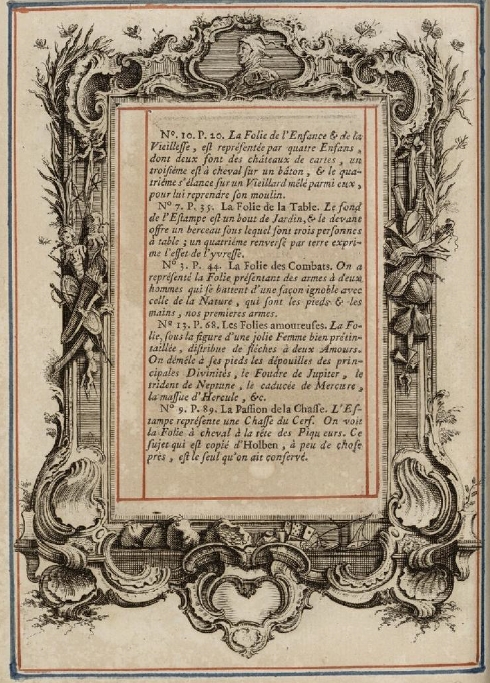 Nº. 10. P. 20. La Folie de l'Enfance & de la
Vieillesse, est représentée par quatre Enfans,
dont deux font des châteaux de cartes, un
troisième est à cheval sur un bâton, & le qua-
trième s'élance sur un Vieillard mêlé parmi eux,
pour lui reprendre son moulin.
Nº 7. P. 35. La Folie de la Table. Le fond
de l'Estampe est un bout de Jardin, & le devant
offre un berceau sous lequel sont trois personnes
à table; un quatrième renversé par terre expri-
me l'effet de l'yvresse.
Nº 3. P. 44. La Folie des Combats. On a
représenté la Folie présentant des armes à deux
hommes qui se battent d'une façon ignoble avec
celle de la Nature, qui sont les pieds & les
mains, nos premieres armes.
Nº 13. P. 68. Les Folies amoureuses. La Fo-
lie, sous la figure d'une jolie Femme bien prétin-
taillée, distribue de flèches à deux Amours.
On démêle à ses pieds les dépouilles des prin-
cipales Divinités, le Foudre de Jupiter, le
trident de Neptune, le caducée de Mercure,
la massue d'Hercule, &c.
Nº 9. P. 89. La Passion de la Chasse. L'Es-
tampe représente une Chasse du Cerf. On voit
la Folie à cheval à la tête des Piqueurs. Ce
sujet qui est copié d'Holben, à peu de chose
pres, est le seul qu'on ait conservé.